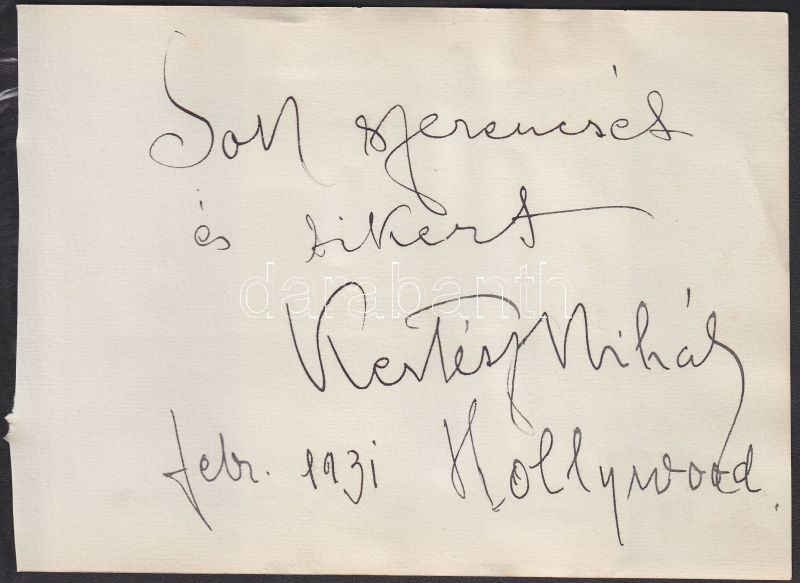 Sok szerencsét
és sikert
darabanth
Kertész Mihály
febr. 1931 Hollywood.